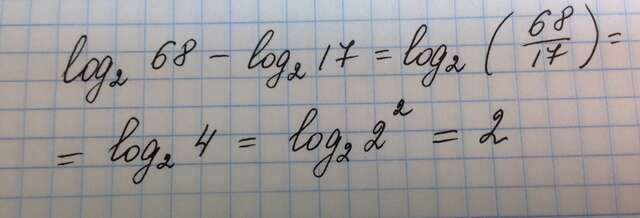 log₂ 68 - log₂ 17 = log₂ (68/17) =
= log₂ 4 = log₂ 2² = 2